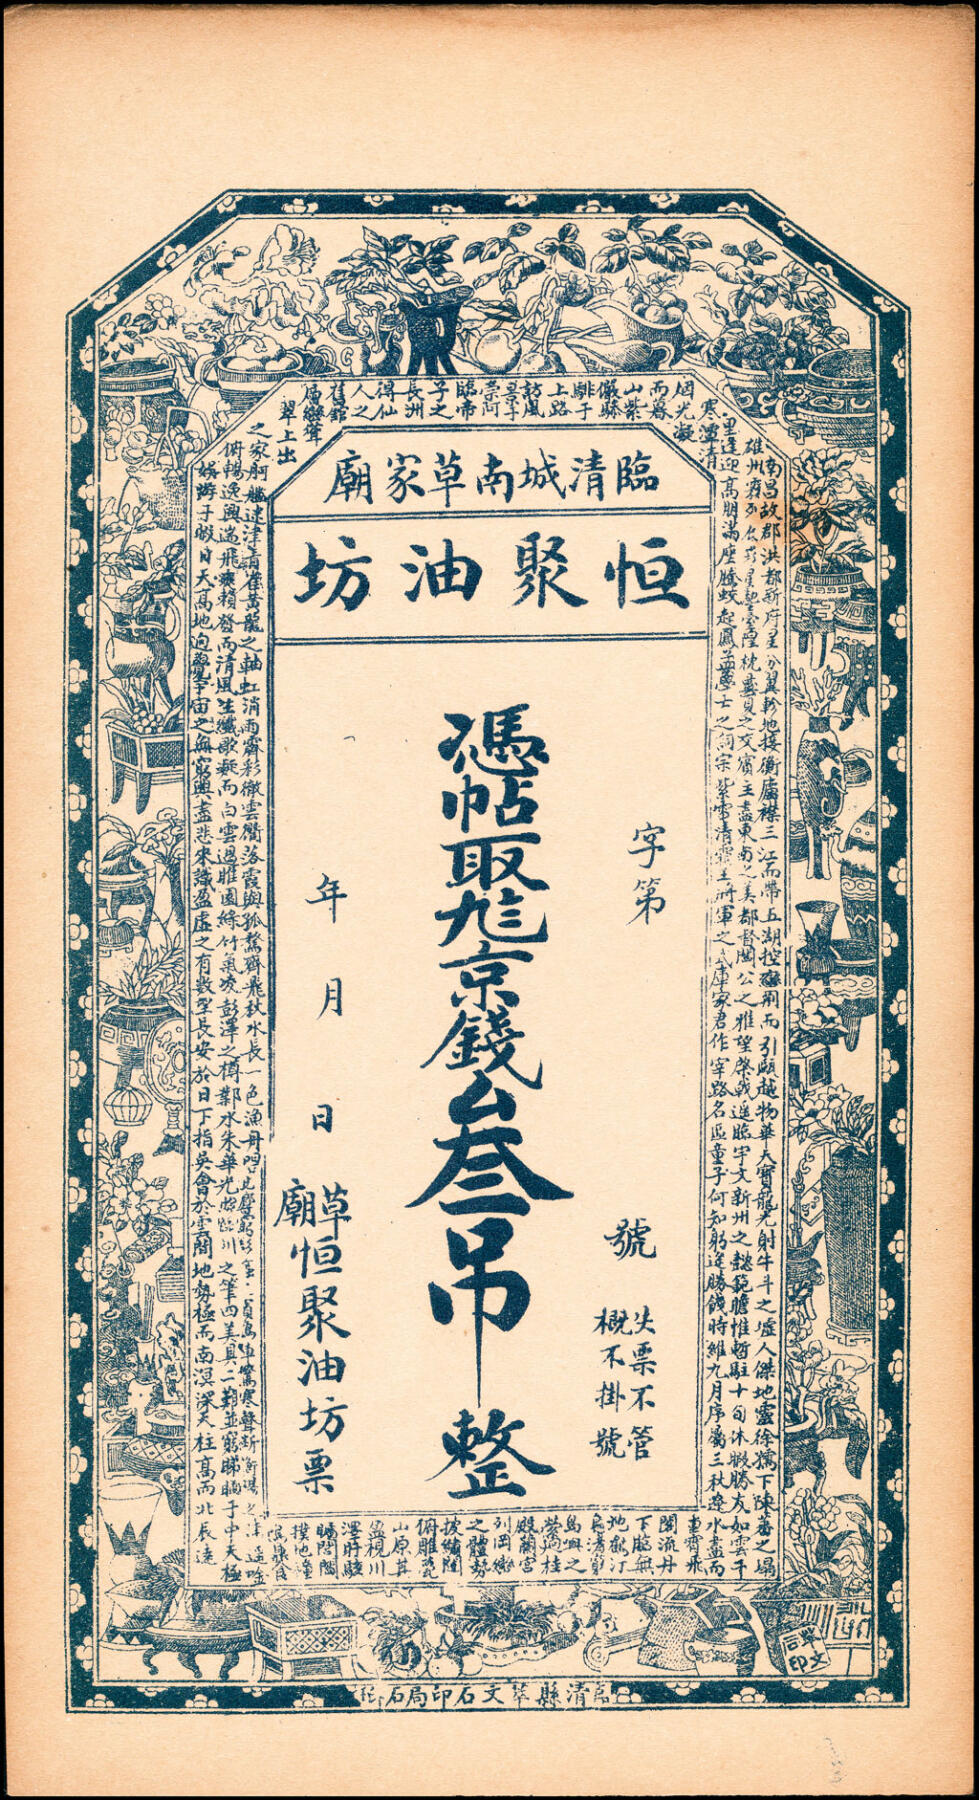 臨清城南草家廟
恒聚油坊
字第
號
失票不管
概不掛號
憑帖取九三京錢叁吊整
年
月
日
草廟恒聚油坊票
南昌故郡洪都新府星分翼軫地接衡廬襟三江而帶五湖控蠻荊而引甌越物華天寶龍光射牛斗之墟人傑地靈徐孺下陳蕃之榻
雄州霧列星馳臺隍枕夷夏之交賓主盡東南之美都督閻公之雅望棨戟遙臨宇文新州之懿範襜惟暫駐十旬休暇勝友如雲千
里逢迎高朋滿座騰蛟起鳳孟學士之詞宗紫電清霜王將軍之武庫家君作宰路名區童子何知躬逢勝餞時維九月序屬三秋潦
水盡而
寒潭清
烟光凝
而暮
山紫
儼驂
騑于
上路
訪風
景于
崇阿
臨帝
子之
長洲
得仙
人之
舊館
層巒聳
翠上出
重霄飛
閣流丹
下臨無
地鶴汀
鳧渚窮
島嶼之
縈迴桂
殿蘭宮
列岡巒
之體勢
披繡闥
俯雕甍
山原其
盈視川
澤盱駭
矚閭閻
撲地鐘
鳴鼎食
之家舸艦迷津青雀黃龍之軸虹消雨霽彩徹雲衢落霞與孤鶩齊飛秋水長一色漁舟唱雁陣驚寒聲斷衡陽之浦遙吟
俯暢逸興遄飛爽籟發而清風生纖歌凝而白雲遏睢園綠竹氣凌彭澤之樽鄴水朱華光照臨川之筆四美具二難並窮睇眄于中天極
娛遊于暇日天高地迥覺宇宙之無窮興盡悲來識盈虛之有數望長安於日下指吳會於雲間地勢極而南溟深天柱高而北辰遠
萃文石印
臨清縣萃文石印局石印